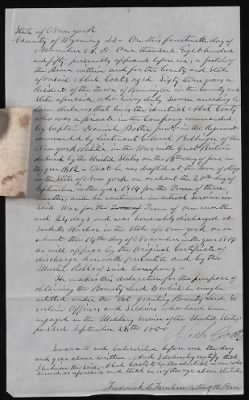 State of New york
County of Wyoming SS. On this fourteenth day of
November A. D. One thousand Eight hundred
and fifty, personally appeared before me, a Justice of
the Peace within and for the County and State
aforesaid, Abel aged Sixty three years a
Resident of the Town of Bennington in the County and
State aforesaid, who being duly sworn according to
Law declares that he is the identical Abel
who was a private in the Company commanded
by Captain Daniel in the Regiment
commanded by Lieutenant Colonel of the
New york Militia in the War with Great Britain
declared by the United States on the 18th day of June in
the year 1812. That he was drafted at the Town of
in the State of New york on or about the day of
September in the year 1814 for the Term of three
months, and he continued in actual Service in
said War for the Term of one month
and 24 days and was honorably discharged at
Sacketts Harbor, in the State of New york on or
about the 14th day of November in the year 1814
as will appear by the Original Certificate of
discharge herewith presented and by the
Muster Rolls of said Company.
He makes this declaration for the purpose of
obtaining the Bounty Land to which he may be
entitled under the "Act granting Bounty Land to
certain Officers and Soldiers who have been
engaged in the Military Service of the United States"
passed September 28th 1850.
Sworn to and subscribed before me the day
and year above written. And I hereby certify that